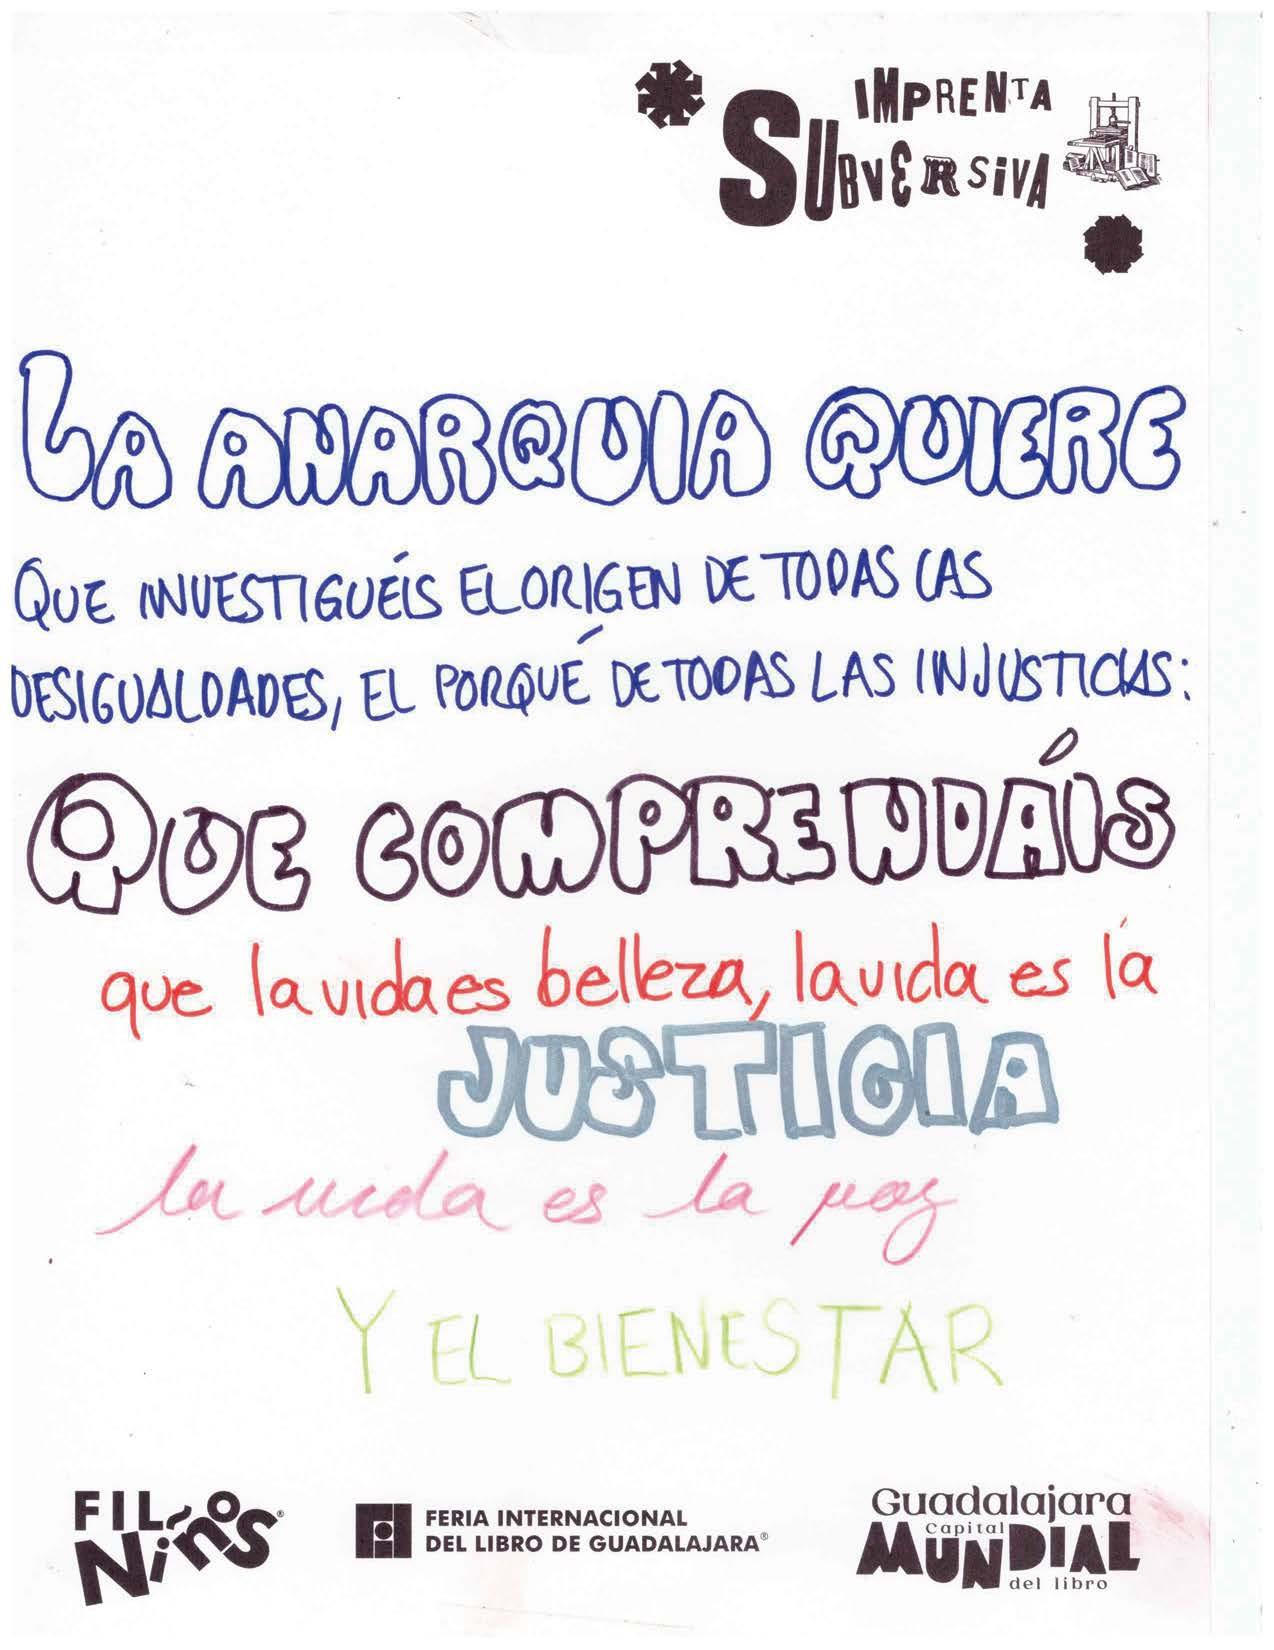 IMPRENTA
SUBVERSIVA
LA ANARQUIA QUIERE
QUE INVESTIGUÉIS EL ORIGEN DE TODAS LAS
DESIGUALDADES, EL PORQUÉ DE TODAS LAS INJUSTICIAS:
QUE COMPRENDÁIS
que la vida es belleza, la vida es la
JUSTICIA
la vida es la paz
Y EL BIENESTAR
FIL
Niños®
FERIA INTERNACIONAL
DEL LIBRO DE GUADALAJARA®
Guadalajara
Capital
MUNDIAL
del libro